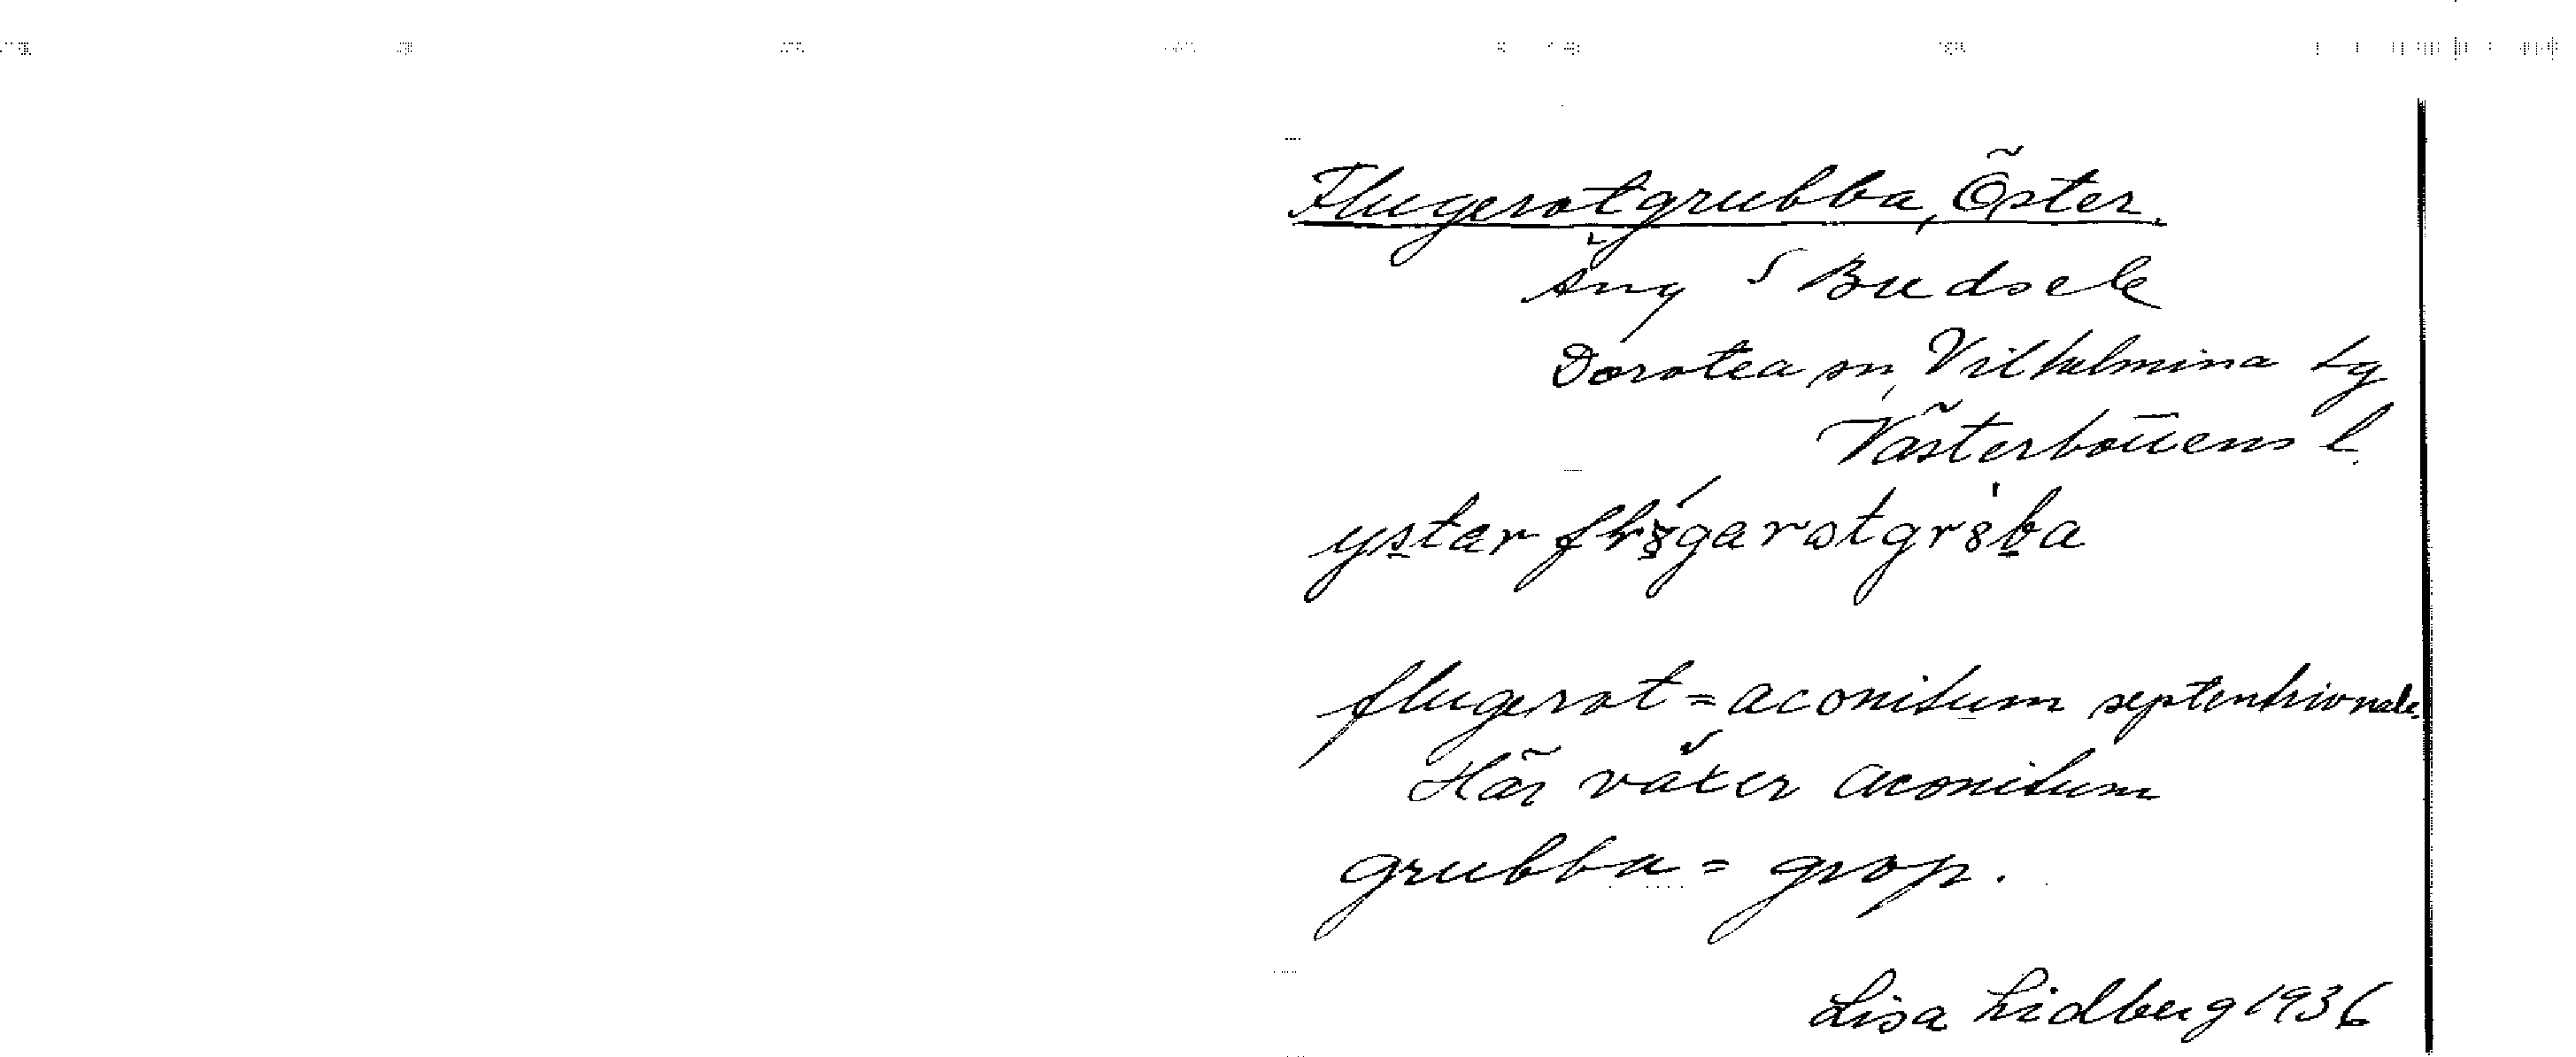 Flugerotgrubba, Öster.
Äng S Budsele
Dorotea sn, Vilhelmina tg
Västerbottens l.
flugerot = aconitum septentrionale.
Här växer aconitum
grubba = grop.
Lisa Lidberg 1936